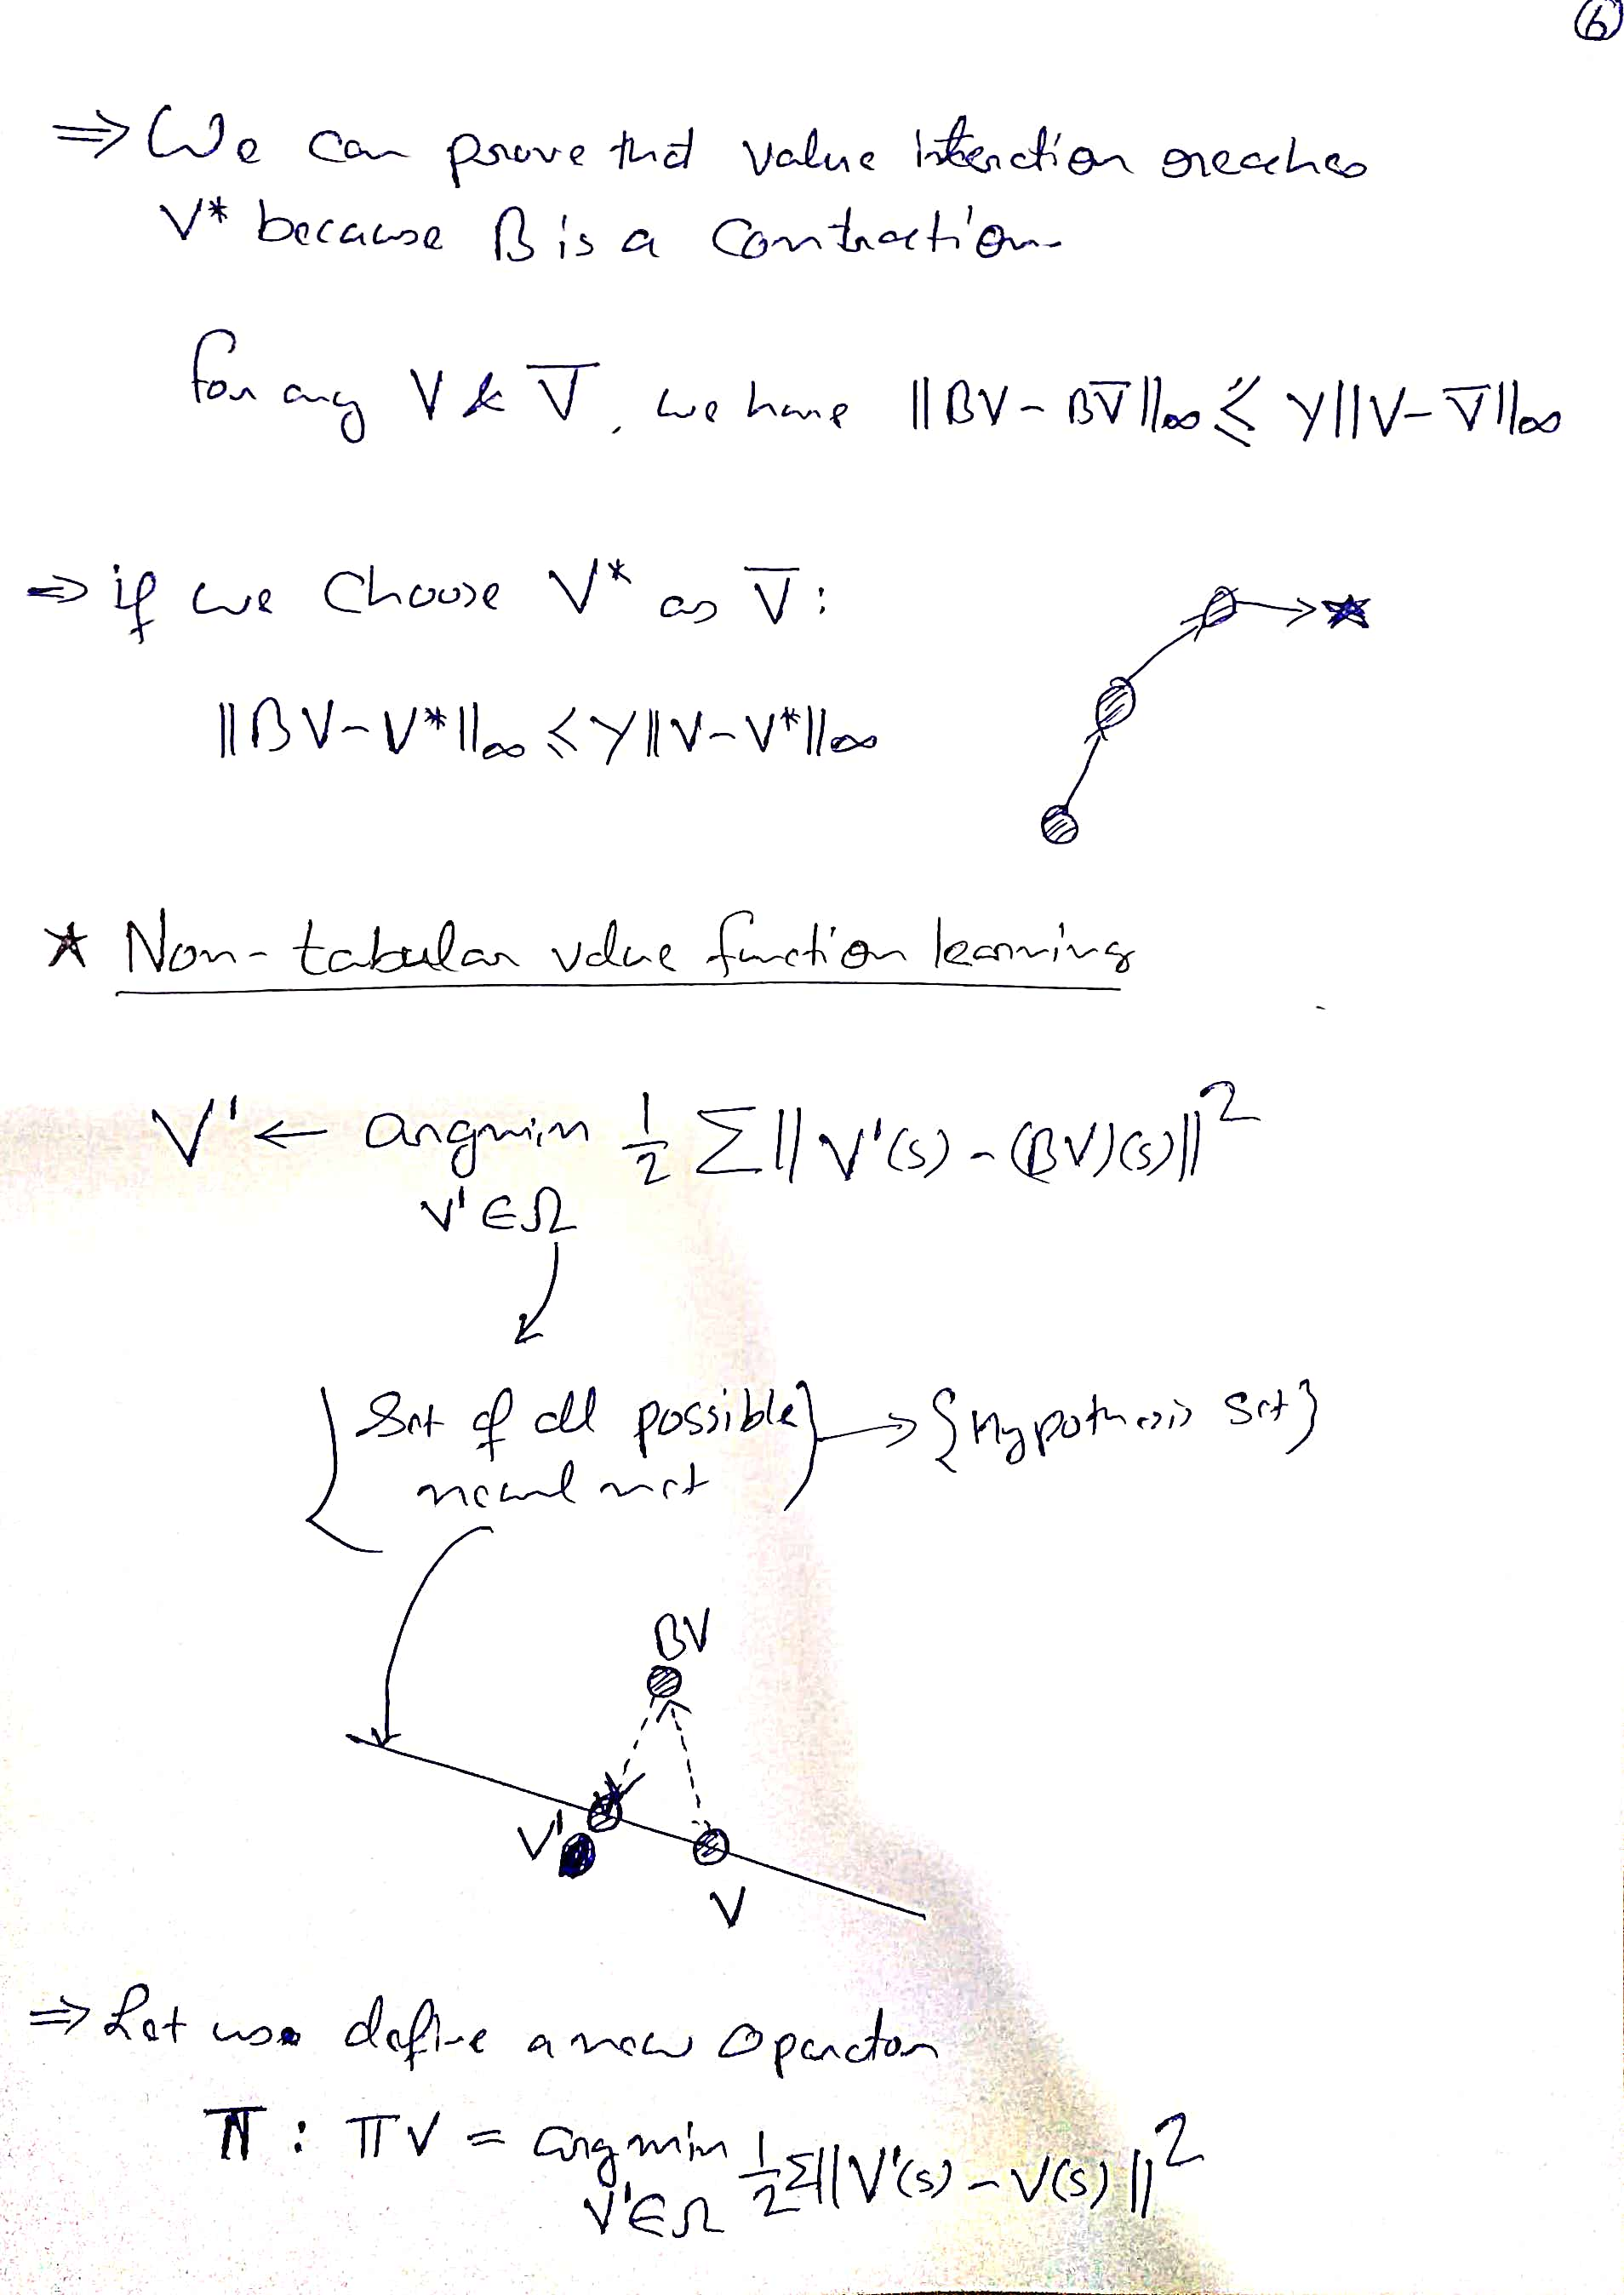 6
⇒ We can prove that value iteraction reaches
V* because B is a contraction
for any V & V̅, we have ||BV - BV̅||∞ ≤ γ||V - V̅||∞
⇒ if we choose V* as V̅ :
||BV - V*||∞ ≤ γ||V - V*||∞
★ Non-tabular value function learning
V' ← argmin ½ Σ||V'(s) - (BV)(s)||²
V' ∈ Ω
{Set of all possible} → {Hypothesis Set}
neural net
BV
V'
V
⇒ Let us define a new operator
Π : ΠV = argmin ½ Σ||V'(s) - V(s)||²
V' ∈ Ω